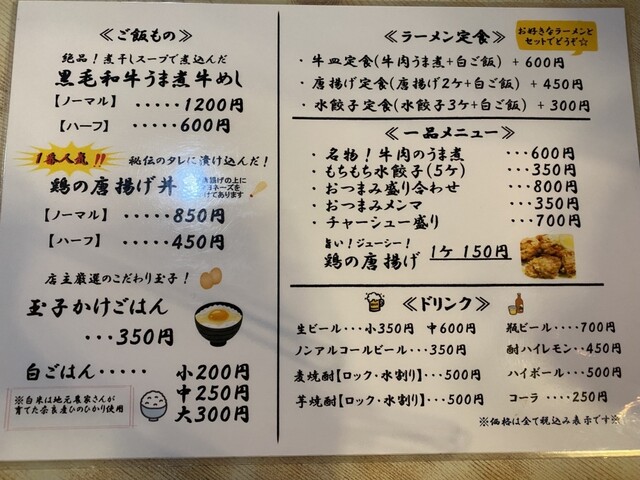 ≪ご飯もの≫
絶品！煮干しスープで煮込んだ
黒毛和牛うま煮牛めし
【ノーマル】・・・・・1200円
【ハーフ】・・・・・600円
1番人気!!
秘伝のタレに漬け込んだ！
鶏の唐揚げ丼
【ノーマル】・・・・・850円
【ハーフ】・・・・・450円
店主厳選のこだわり玉子！
玉子かけごはん
・・・350円
白ごはん・・・・・ 小200円
中250円
大300円
※白米は地元農家さんが
育てた奈良産ひのひかり使用
≪ラーメン定食≫
お好きなラーメンと
セットでどうぞ☆
・牛皿定食(牛肉うま煮+白ご飯) + 600円
・唐揚げ定食(唐揚げ2ケ+白ご飯) + 450円
・水餃子定食(水餃子3ケ+白ご飯) + 300円
≪一品メニュー≫
・名物！牛肉のうま煮 ・・・600円
・もちもち水餃子(5ケ) ・・・・350円
・おつまみ盛り合わせ ・・・800円
・おつまみメンマ ・・・350円
・チャーシュー盛り ・・・700円
旨い！ジューシー！
鶏の唐揚げ 1ケ 150円
≪ドリンク≫
生ビール・・・小350円 中600円
ノンアルコールビール・・・350円
麦焼酎【ロック・水割り】・・・500円
芋焼酎【ロック・水割り】・・・500円
瓶ビール・・・・700円
酎ハイレモン・・450円
ハイボール・・・500円
コーラ ・・・・250円
※価格は全て税込み表示です※